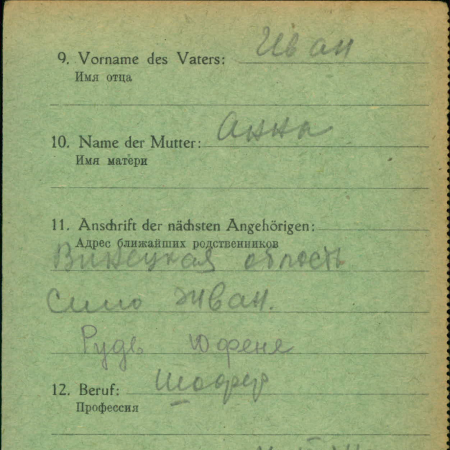 9. Vorname des Vaters: Иван
Имя отца
10. Name der Mutter: Анна
Имя матери
11. Anschrift der nächsten Angehörigen:
Адрес ближайших родственников
Винецкая область
Село Жван.
Рудь
12. Beruf: Шофер
Профессия